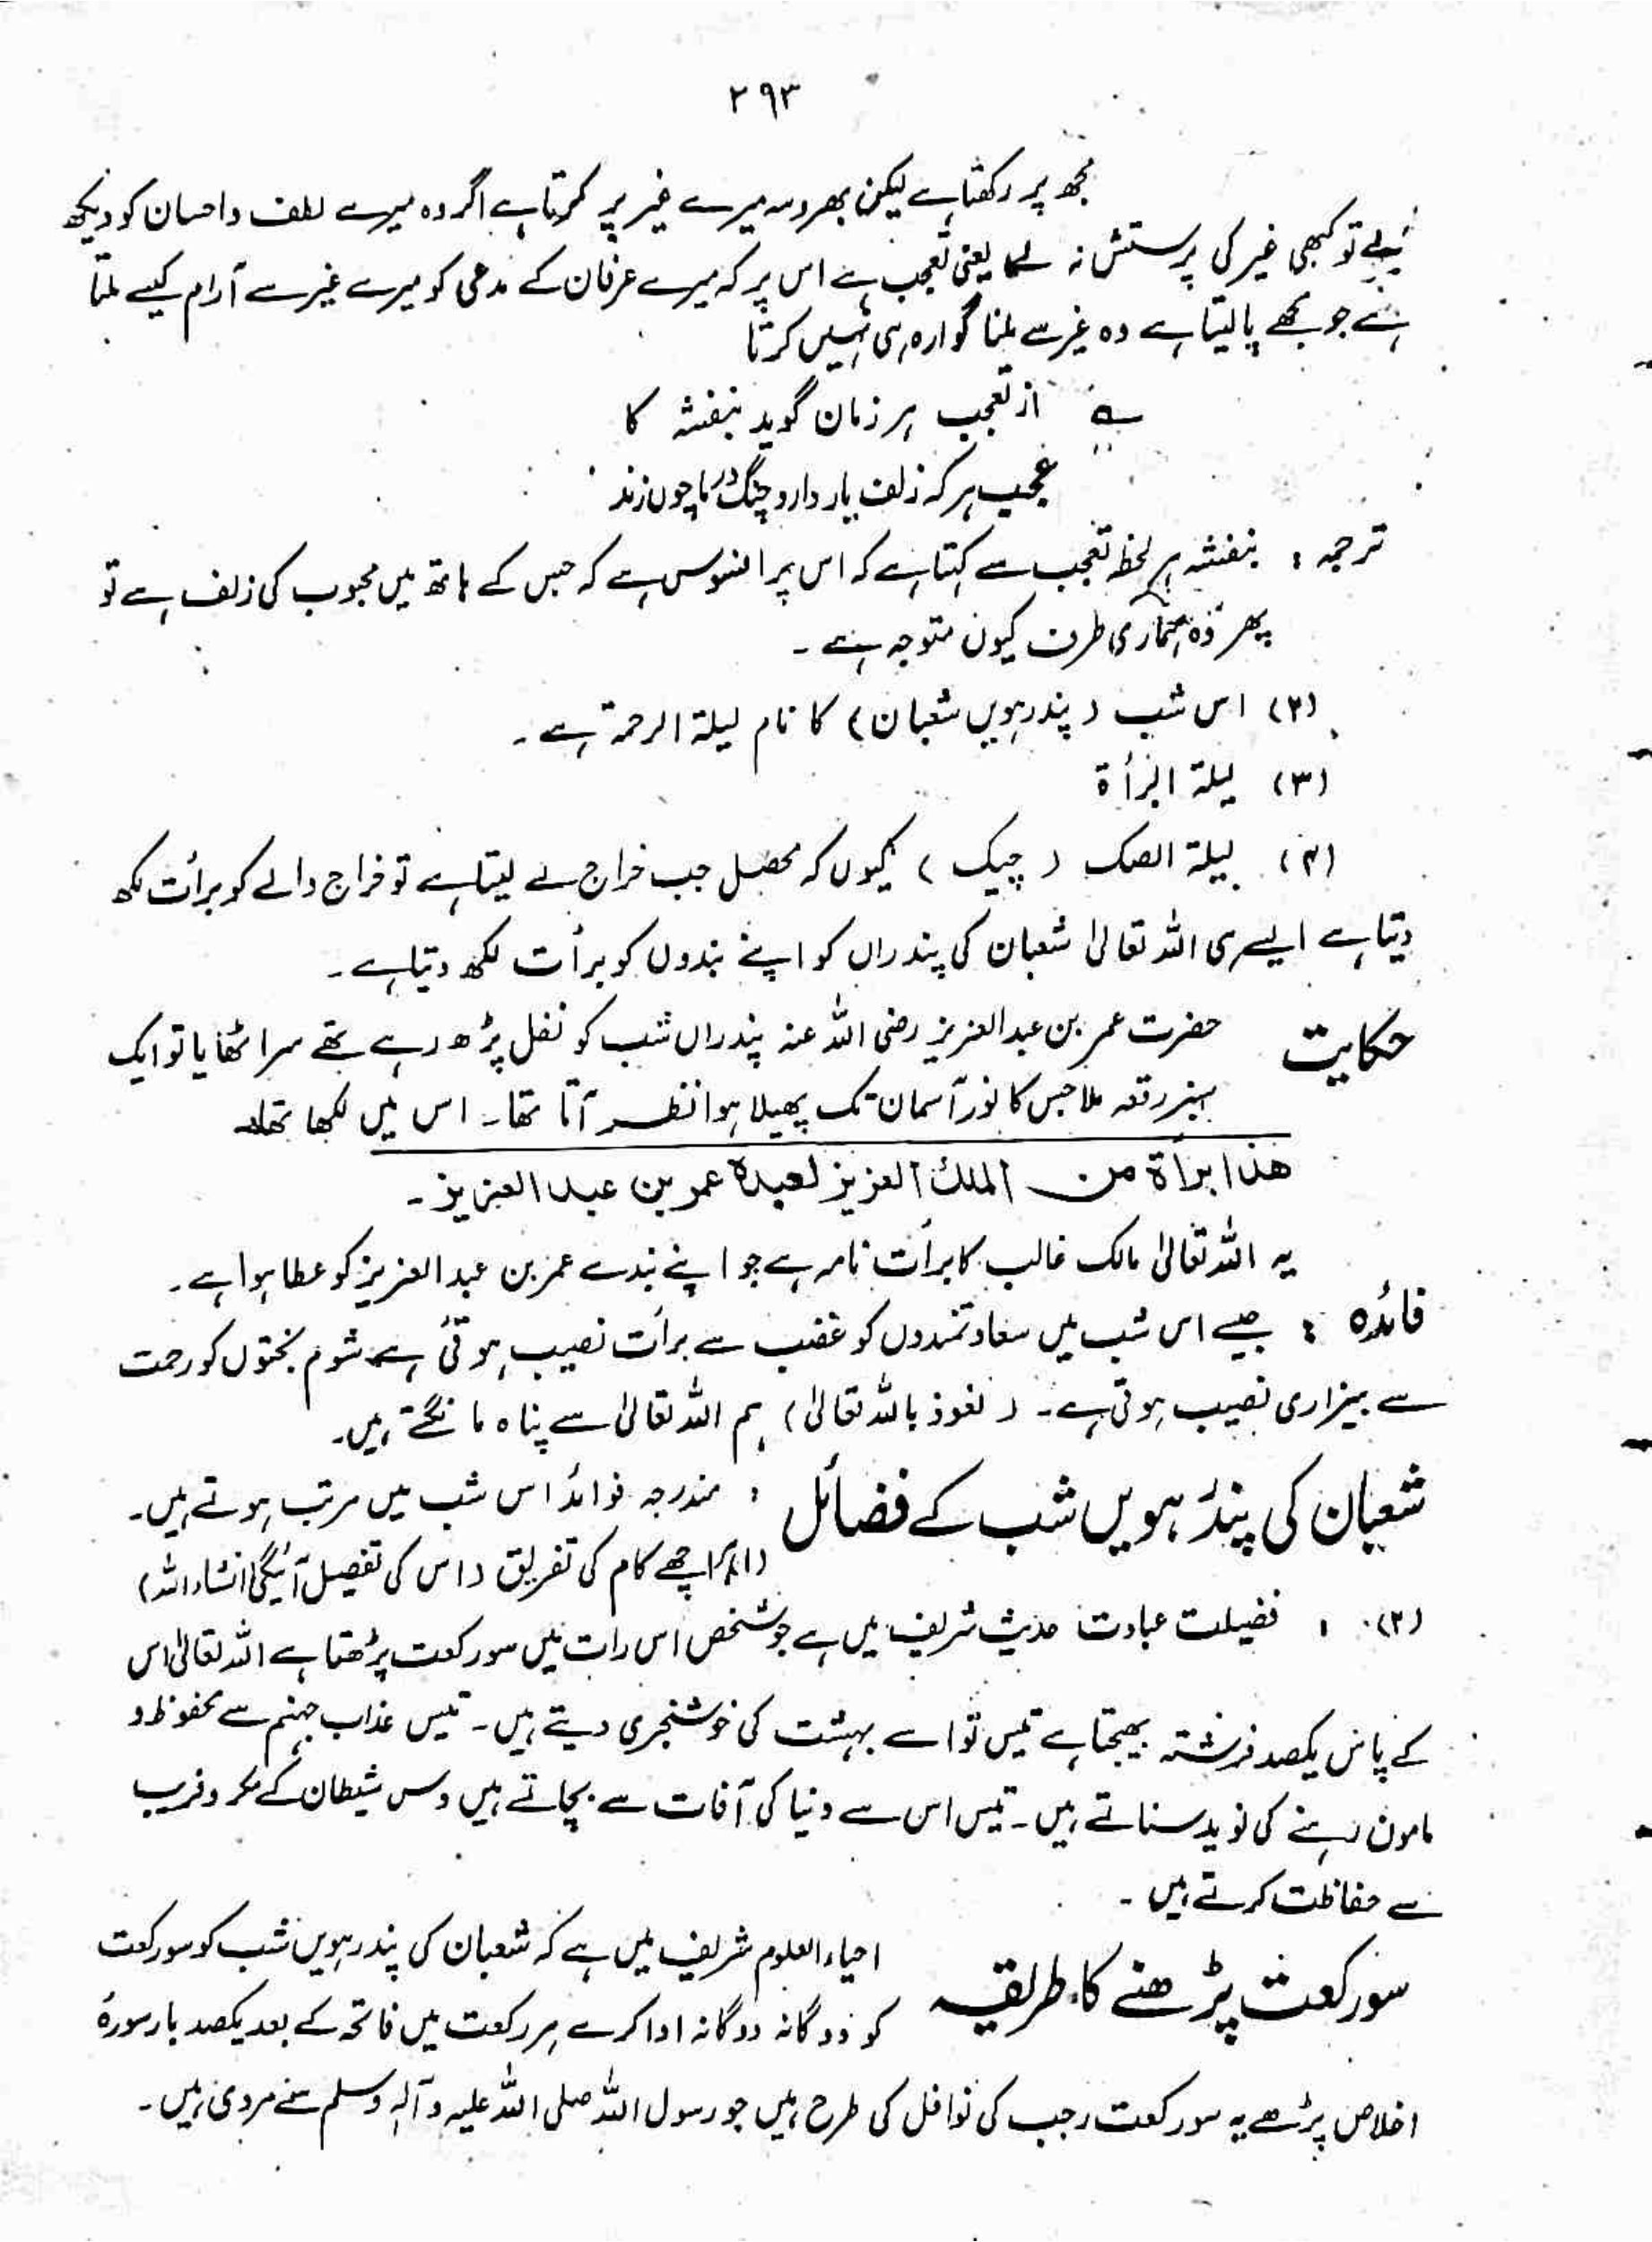 ۲۹۳
مجھ پر رکھتا ہے لیکن بھروسہ میرے غیر پر کرتا ہے اگر وہ میرے لطف و احسان کو دیکھ
تو کبھی غیر کی پرستش نہ یعنی تعجب ہے اس پر کہ میرے عرفان کے مدعی کو میرے غیر سے آرام کیسے ملتا
ہے جو مجھے پا لیتا ہے وہ غیر سے ملنا گوارہ ہی نہیں کرتا
از تعجب ہر زمان گوید بنفشہ کا
عجیب ہر کہ زلف یار دارد چنگ در ما چون زند
ترجمہ : بنفشہ ہر لحظہ تعجب سے کہتا ہے کہ اس پر افسوس ہے کہ جس کے ہاتھ میں محبوب کی زلف ہے تو
پھر وہ ہماری طرف کیوں متوجہ ہے ۔
(۲) اس شب ( پندرہویں شعبان ) کا نام لیلۃ الرحمۃ ہے ۔
(۳) لیلۃ البرأۃ
(۴) لیلۃ الصک ( چیک ) کیوں کہ محصل جب خراج لے لیتا ہے تو خراج والے کو برأت لکھ
دیتا ہے ایسے ہی اللہ تعالیٰ شعبان کی پندراں کو اپنے بندوں کو برأت لکھ دیتا ہے ۔
حکایت حضرت عمر بن عبدالعزیز رضی اللہ عنہ پندراں شب کو نفل پڑھ رہے تھے سر اٹھایا تو ایک
سبز رقعہ ملا جس کا نور آسمان تک پھیلا ہوا نظر آتا تھا ۔ اس میں لکھا تھا
ھذا برأۃ من الملك العزیز لعبدہ عمر بن عبد العزیز ۔
یہ اللہ تعالیٰ مالک غالب کا برأت نامہ ہے جو اپنے بندے عمر بن عبد العزیز کو عطا ہوا ہے ۔
فائدہ : جیسے اس شب میں سعادتمندوں کو غضب سے برأت نصیب ہوتی ہے شوم بختوں کو رحمت
سے بیزاری نصیب ہوتی ہے ۔ ( نعوذ باللہ تعالیٰ ) ہم اللہ تعالیٰ سے پناہ مانگتے ہیں ۔
شعبان کی پندرہویں شب کے فضائل : مندرجہ فوائد اس شب میں مرتب ہوتے ہیں ۔
(۱) اچھے کام کی تفریق ( اس کی تفصیل آئیگی انشاء اللہ )
(۲) : فضیلت عبادت حدیث شریف میں ہے جو شخص اس رات میں سو رکعت پڑھتا ہے اللہ تعالیٰ اس
کے پاس یکصد فرشتہ بھیجتا ہے تیس تو اسے بہشت کی خوشخبری دیتے ہیں ۔ تیس عذاب جہنم سے محفوظ و
مامون رہنے کی نوید سناتے ہیں ۔ تیس اس سے دنیا کی آفات سے بچاتے ہیں دس شیطان کے مکر و فریب
سے حفاظت کرتے ہیں ۔
سو رکعت پڑھنے کا طریقہ احیاء العلوم شریف میں ہے کہ شعبان کی پندرہویں شب کو سو رکعت
کو دوگانہ دوگانہ ادا کرے ہر رکعت میں فاتحہ کے بعد یکصد بار سورۂ
اخلاص پڑھے یہ سو رکعت رجب کی نوافل کی طرح ہیں جو رسول اللہ صلی اللہ علیہ و آلہ وسلم سے مروی ہیں ۔